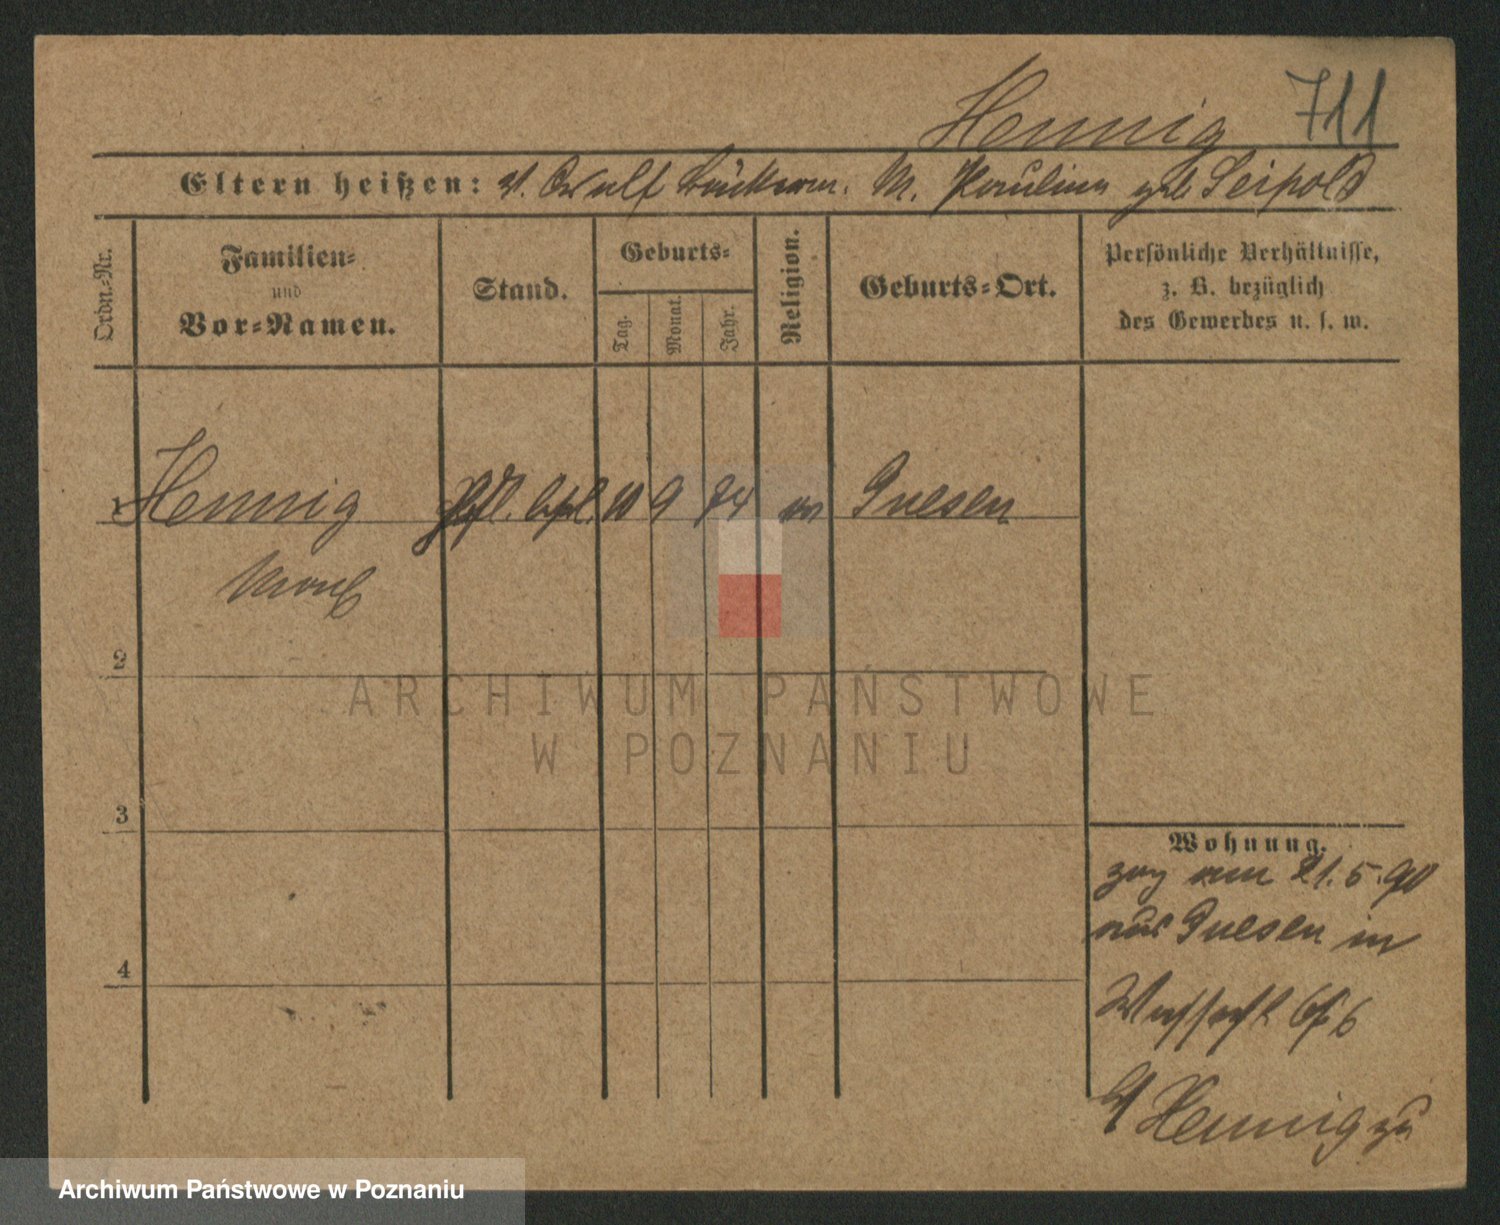 Hennig 711
Eltern heißen: V. Adolf M. Pauline geb Leipold
Ordn.-Nr.
Familien-
und
Vor-Namen.
Stand.
Geburts-
Tag.
Monat.
Jahr.
Religion.
Geburts-Ort.
Persönliche Verhältnisse,
z. B. bezüglich
des Gewerbes u. s. w.
1 Hennig 10 9 74 Gnesen
2
3
4
Wohnung.
zog am 21.5.90
aus Gnesen in
Hennig zu
ARCHIWUM PAŃSTWOWE
W POZNANIU
Archiwum Państwowe w Poznaniu